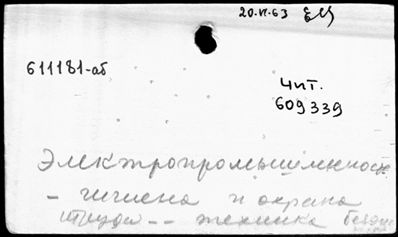 20.VI.63
611181-аб
Чит.
609339
Электропромышленность
- гигиена и охрана
труда -- техника безопас